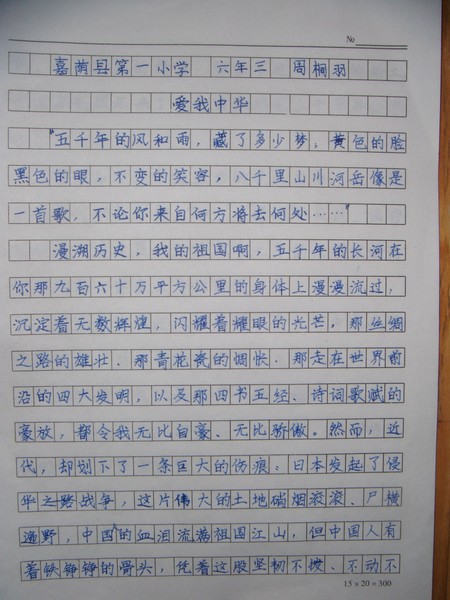 №
嘉荫县第一小学 六年三 周桐羽
爱我中华
"五千年的风和雨，藏了多少梦，黄色的脸
黑色的眼，不变的笑容，八千里山川河岳像是
一首歌，不论你来自何方将去何处……"
漫溯历史，我的祖国啊，五千年的长河在
你那九百六十万平方公里的身体上漫漫流过，
沉淀着无数辉煌，闪耀着耀眼的光芒，那丝绸
之路的雄壮、那青花瓷的惆怅、那走在世界前
沿的四大发明，以及那四书五经、诗词歌赋的
豪放，都令我无比自豪、无比骄傲。然而，近
代，却划下了一条巨大的伤痕：日本发起了侵
华之战争，这片伟大的土地硝烟滚滚、尸横
遍野，中国的血泪流满祖国江山，但中国人有
着铁铮铮的骨头，凭着这股坚韧不拔、不动不
15×20=300